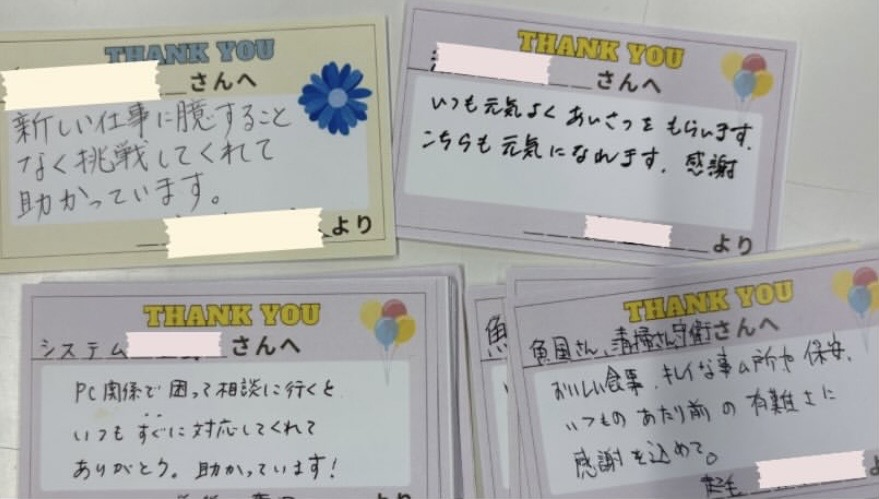 THANK YOU
さんへ
新しい仕事に臆すること
なく挑戦してくれて
助かっています。
より
THANK YOU
さんへ
いつも元気よくあいさつをもらいます。
こちらも元気になれます。感謝
より
THANK YOU
システム さんへ
PC関係で困って相談に行くと
いつもすぐに対応してくれて
ありがとう。助かっています!
より
魚
THANK YOU
魚国さん、清掃さん守衛さんへ
おいしい食事、キレイな事ム所や保安、
いつものあたり前の有難さに
感謝を込めて。